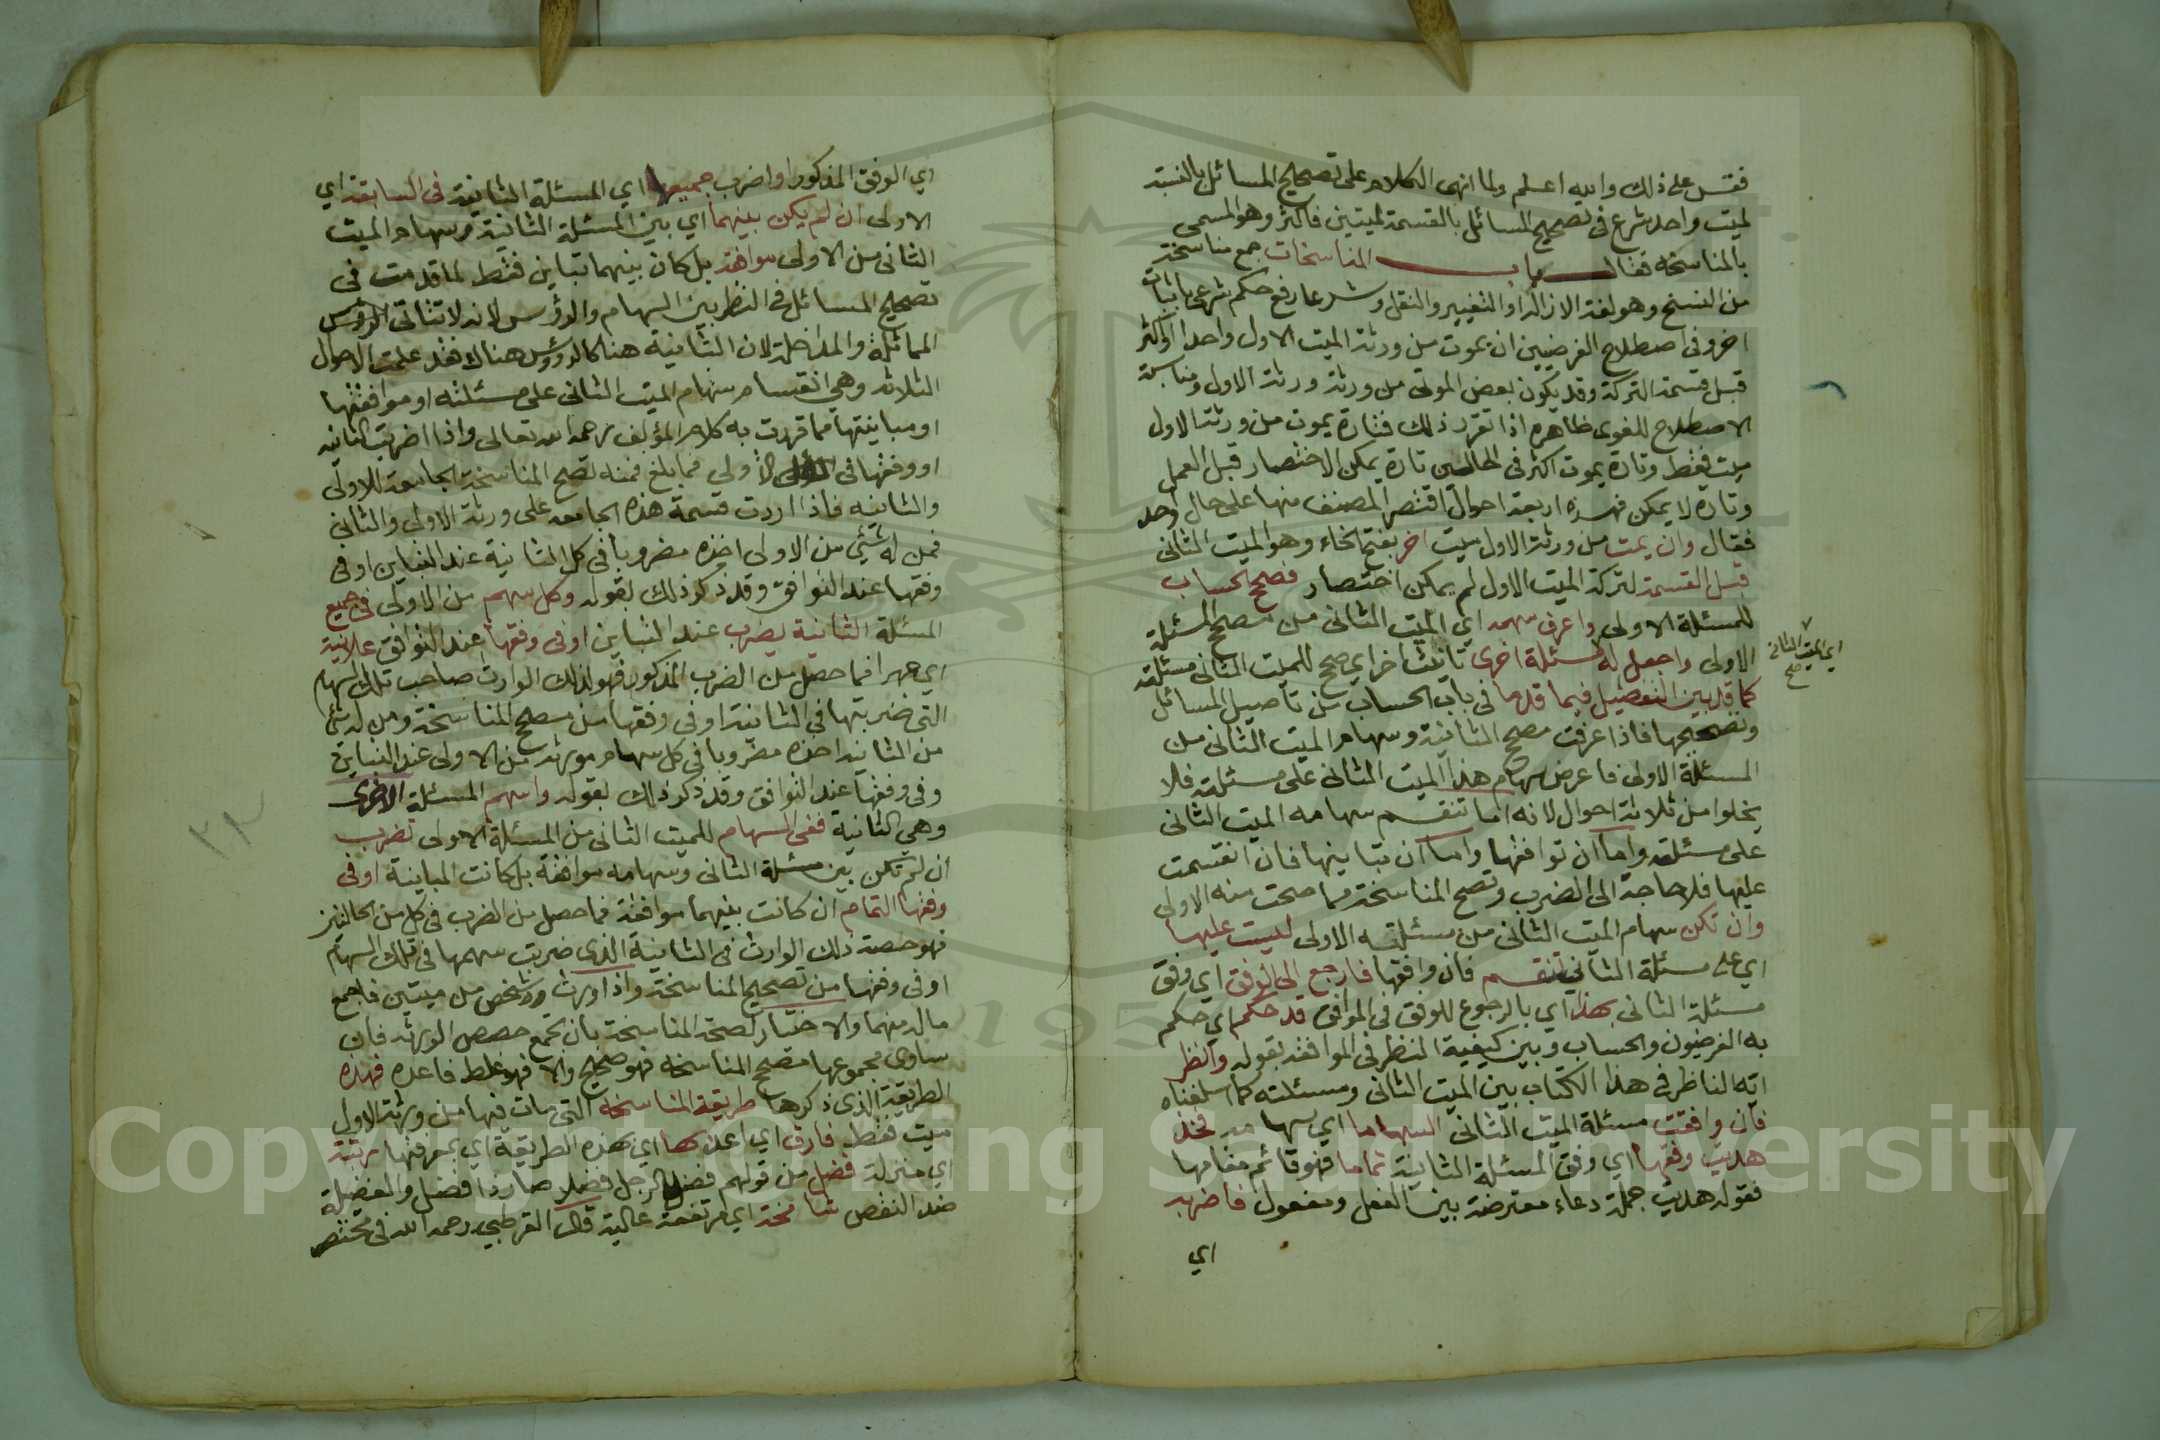 فقس على ذلك والله اعلم ولما انهى الكلام على تصحيح المسائل بالنسبة
لميت واحد شرع في تصحيح المسائل بالقسمة لميتين فاكثر وهو المسمى
بالمناسخة فقال باب المناسخات جمع مناسخة
من النسخ وهو لغة الازالة او التغيير والنقل وشرعا رفع حكم شرعي باثبات
اخر وفي اصطلاح الفرضيين ان يموت من ورثة الميت الاول واحد او اكثر
قبل قسمة التركة وقد يكون بعض الموتى من ورثة ورثة الاول ومناسبة
الاصطلاح للغوى ظاهرة اذا تقرر ذلك فتارة يموت من ورثة الاول
ميت فقط وتارة يموت اكثر في الحالين تارة يمكن الاختصار قبل العمل
وتارة لا يمكن فهذه اربعة احوال اقتصر المصنف منها على حال واحد
فقال وان يمت من ورثة الاول ميت اخر بفتح الخاء وهو الميت الثاني
قبل القسمة لتركة الميت الاول لم يمكن اختصار فصحح الحساب
للمسئلة الاولى واعرف سهمه اي الميت الثاني من مصحح المسئلة
الاولى واجعل له مسئلة اخرى تانيث اخر اي صحح للميت الثاني مسئلته
اي الميت الثاني صح
كما قد بين التفصيل فيما قدما في باب الحساب من تاصيل المسائل
وتصحيحها فاذا عرفت مصحح الثانية وسهام الميت الثاني من
المسئلة الاولى فاعرض سهام هذا الميت الثاني على مسئلته فلا
يخلوا من ثلاثة احوال لانه اما تنقسم سهامه الميت الثاني
على مسئلته واما ان توافقها واما ان تباينها فان انقسمت
عليها فلا حاجة الى الضرب وتصح المناسخة مما صحت منه الاولى
وان تكن سهام الميت الثاني من مسئلته الاولى ليست عليها
اي على مسئلة الثاني تنقسم فان وافقها فارجع الى الوفق اي وفق
مسئلة الثاني بهذا اي بالرجوع للوفق في الموافق قد حكم اي حكم
به الفرضيون والحساب وبين كيفية النظر في الموافقة بقوله وانظر
ايه الناظر في هذا الكتاب بين الميت الثاني ومسئلته كما اسلفناه
فان وافقت مسئلة الميت الثاني السهاما اي سهامه فخذ
هديت وفقها اي وفق المسئلة الثانية تماما فهو قائم مقامها
فقوله هديت جملة دعاء معترضة بين الفعل ومفعول فاضربه
اي
اي الوفق المذكور او اضرب جميعها اي المسئلة الثانية في السابقة اي
الاولى ان لم يكن بينهما اي بين المسئلة الثانية وسهام الميت
الثاني من الاولى موافقة بل كان بينهما تباين فقط لما قدمت في
تصحيح المسائل في النظر بين السهام والرؤس لانه لا تتاتى الرؤس
المماثلة والمداخلة لان الثانية هنا كالرؤوس هناك فقد علمت الاحوال
الثلاثة وهي انقسام سهام الميت الثاني على مسئلته او موافقتها
او مباينتها مما قررت به كلام المؤلف رحمه الله تعالى واذا اضربت الثانية
او وفقها في الاولى فما بلغ فمنه تصح المناسخة الجامعة للاولى
والثانية فاذا اردت قسمة هذه الجامعة على ورثة الاولى والثاني
فمن له شئ من الاولى اخذه مضروبا في كل الثانية عند التباين او في
وفقها عند التوافق وقد ذكر ذلك بقوله وكل سهم من الاولى في جميع
المسئلة الثانية يضرب عند التباين او في وفقها عند التوافق علانية
اي جهرا فما حصل من الضرب المذكور فهو لذلك الوارث صاحب تلك السهام
التي ضربتها في الثانية او في وفقها من مصحح المناسخة ومن له شئ
من الثانية اخذه مضروبا في كل سهام مورثه من الاولى عند التباين
وفي وفقها عند التوافق وقد ذكر ذلك بقوله واسهم المسئلة الاخرى
وهي الثانية ففي السهام للميت الثاني من المسئلة الاولى تضرب
ان لم تكن بين مسئلة الثاني وسهامه موافقة بل كانت المباينة او في
وفقها التمام ان كانت بينهما موافقة فما حصل من الضرب في كل من الحالتين
فهو حصة ذلك الوارث في الثانية الذي ضربت سهمها في تلك السهام
او في وفقها من تصحيح المناسخة واذا ورث شخص من ميتين فاجمع
ماله منهما والاختبار لصحة المناسخة بان تجمع حصص الورثة فان
ساوى مجموعها مصحح المناسخة فهو صحيح والا فهو غلط فاعده فهذه
الطريقة الذي ذكرها طريقة المناسخة التي مات فيها من ورثة الاول
ميت فقط فارق اي اعل بها اي بهذه الطريقة اي بمعرفتها رتبة
اي منزلة فضل من قولهم فضل الرجل فضلا صار ذا فضل والفضيلة
ضد النقص شامخة اي مرتفعة عالية قال القرطبي رحمه الله في مختصر
Copyright © King Saud University
1957